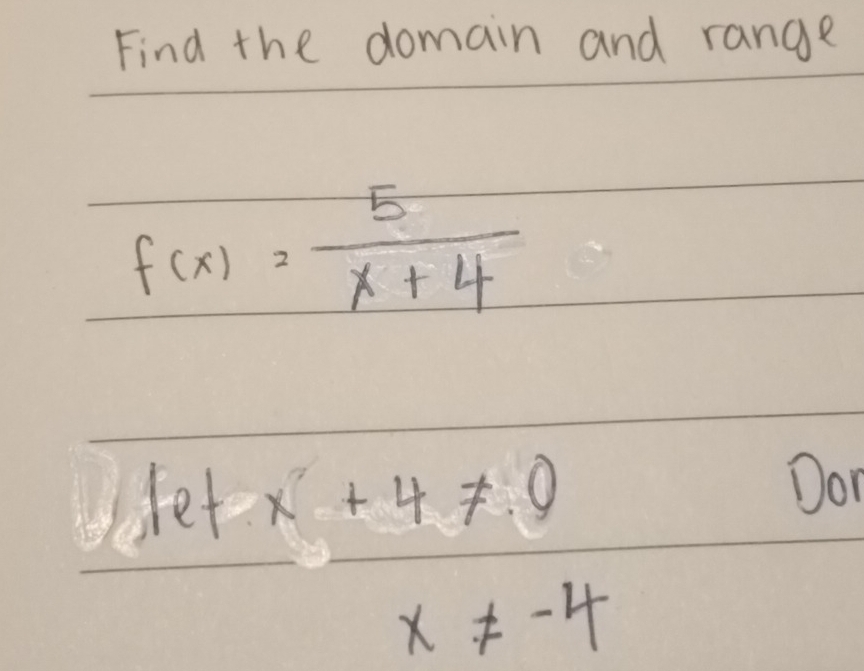 Find the domain and range
f(x) = 5 / x + 4
let x + 4 ≠ 0
x ≠ -4